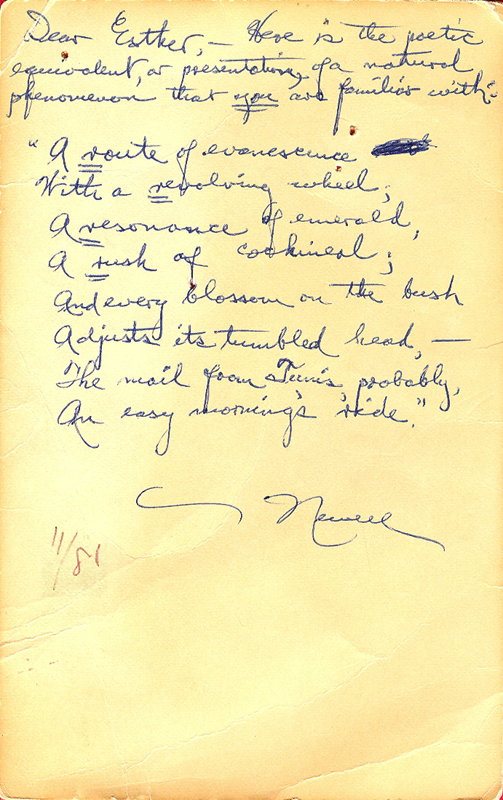 Dear Esther, — Here is the poetic
equivalent, or presentation, of a natural
phenomenon that you are familiar with:
"A route of evanescence
With a revolving wheel;
A resonance of emerald,
A rush of cochineal;
And every blossom on the bush
Adjusts its tumbled head, —
The mail from Tunis, probably,
An easy morning's ride."
Newell
11/81